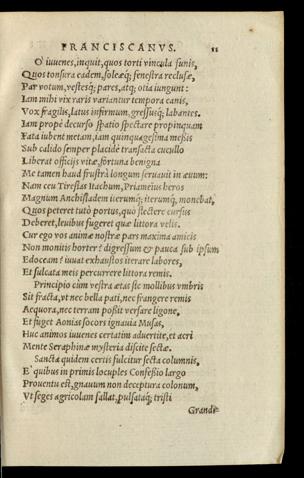 FRANCISCANVS. 11
O iuuenes, inquit, quos torti vincula funis,
Quos tonsura eadem, soleæq; fenestra reclusæ,
Par votum, vestesq; pares, atq; otia iungunt:
Iam mihi vix raris variantur tempora canis,
Vox fragilis, latus infirmum, gressusq; labantes.
Iam propè decurso spatio spectare propinquam
Fata iubent metam, iam quinquagesima messis
Sub calido semper placidè transacta cucullo
Liberat officijs vitæ, fortuna benigna
Me tamen haud frustrà longum seruauit in æuum:
Nam ceu Tiresias Itachum, Priameius heros
Magnum Anchisiadem iterumq; iterumq; monebat,
Quos peteret tutò portus, quò flectere cursus
Deberet, leuibus fugeret quæ littora velis.
Cur ego vos animæ nostræ pars maxima amicis
Non monitis horter? digressum & pauca sub ipsum
Edoceam? iuuat exhaustos iterare labores,
Et sulcata meis percurrere littora remis.
Principio cùm vestra ætas sic mollibus vmbris
Sit fracta, vt nec bella pati, nec frangere remis
Aequora, nec terram possit versare ligone,
Et fuget Aonias socors ignauia Musas,
Huc animos iuuenes certatim aduertite, et acri
Mente Seraphinæ mysteria discite sectæ.
Sancta quidem certis fulcitur secta columnis,
E' quibus in primis locuples Confessio largo
Prouentu est, gnauum non deceptura colonum,
Vt seges agricolam fallat, pulsataq; tristi
Grandi-